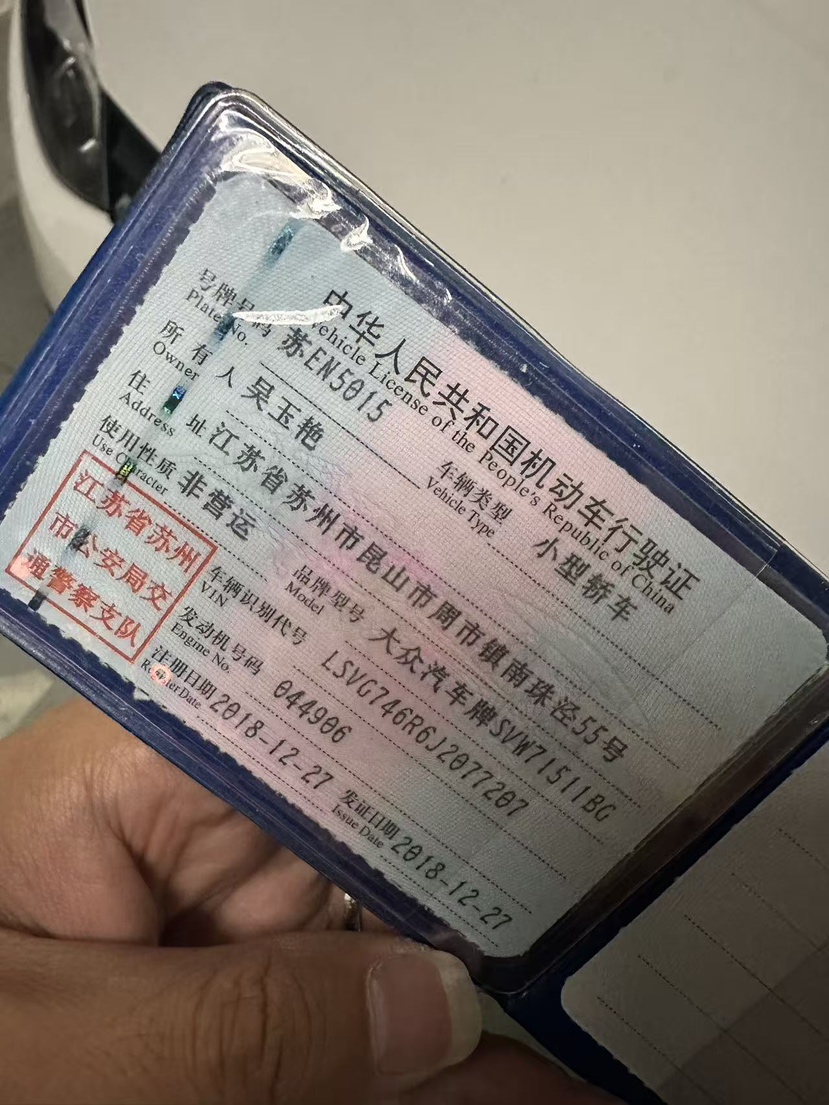 中华人民共和国机动车行驶证
Vehicle License of the People's Republic of China
号牌号码 苏EN5015 车辆类型 小型轿车
Plate No. Vehicle Type
所有人 吴玉艳
Owner
住址 江苏省苏州市昆山市周市镇南珠泾55号
Address
使用性质 非营运 品牌型号 大众汽车牌SVW71511BG
Use Character Model
江苏省苏州
市公安局交
通警察支队
车辆识别代号 LSVG746R6J2077207
VIN
发动机号码 044906
Engine No.
注册日期 2018-12-27 发证日期 2018-12-27
Register Date Issue Date